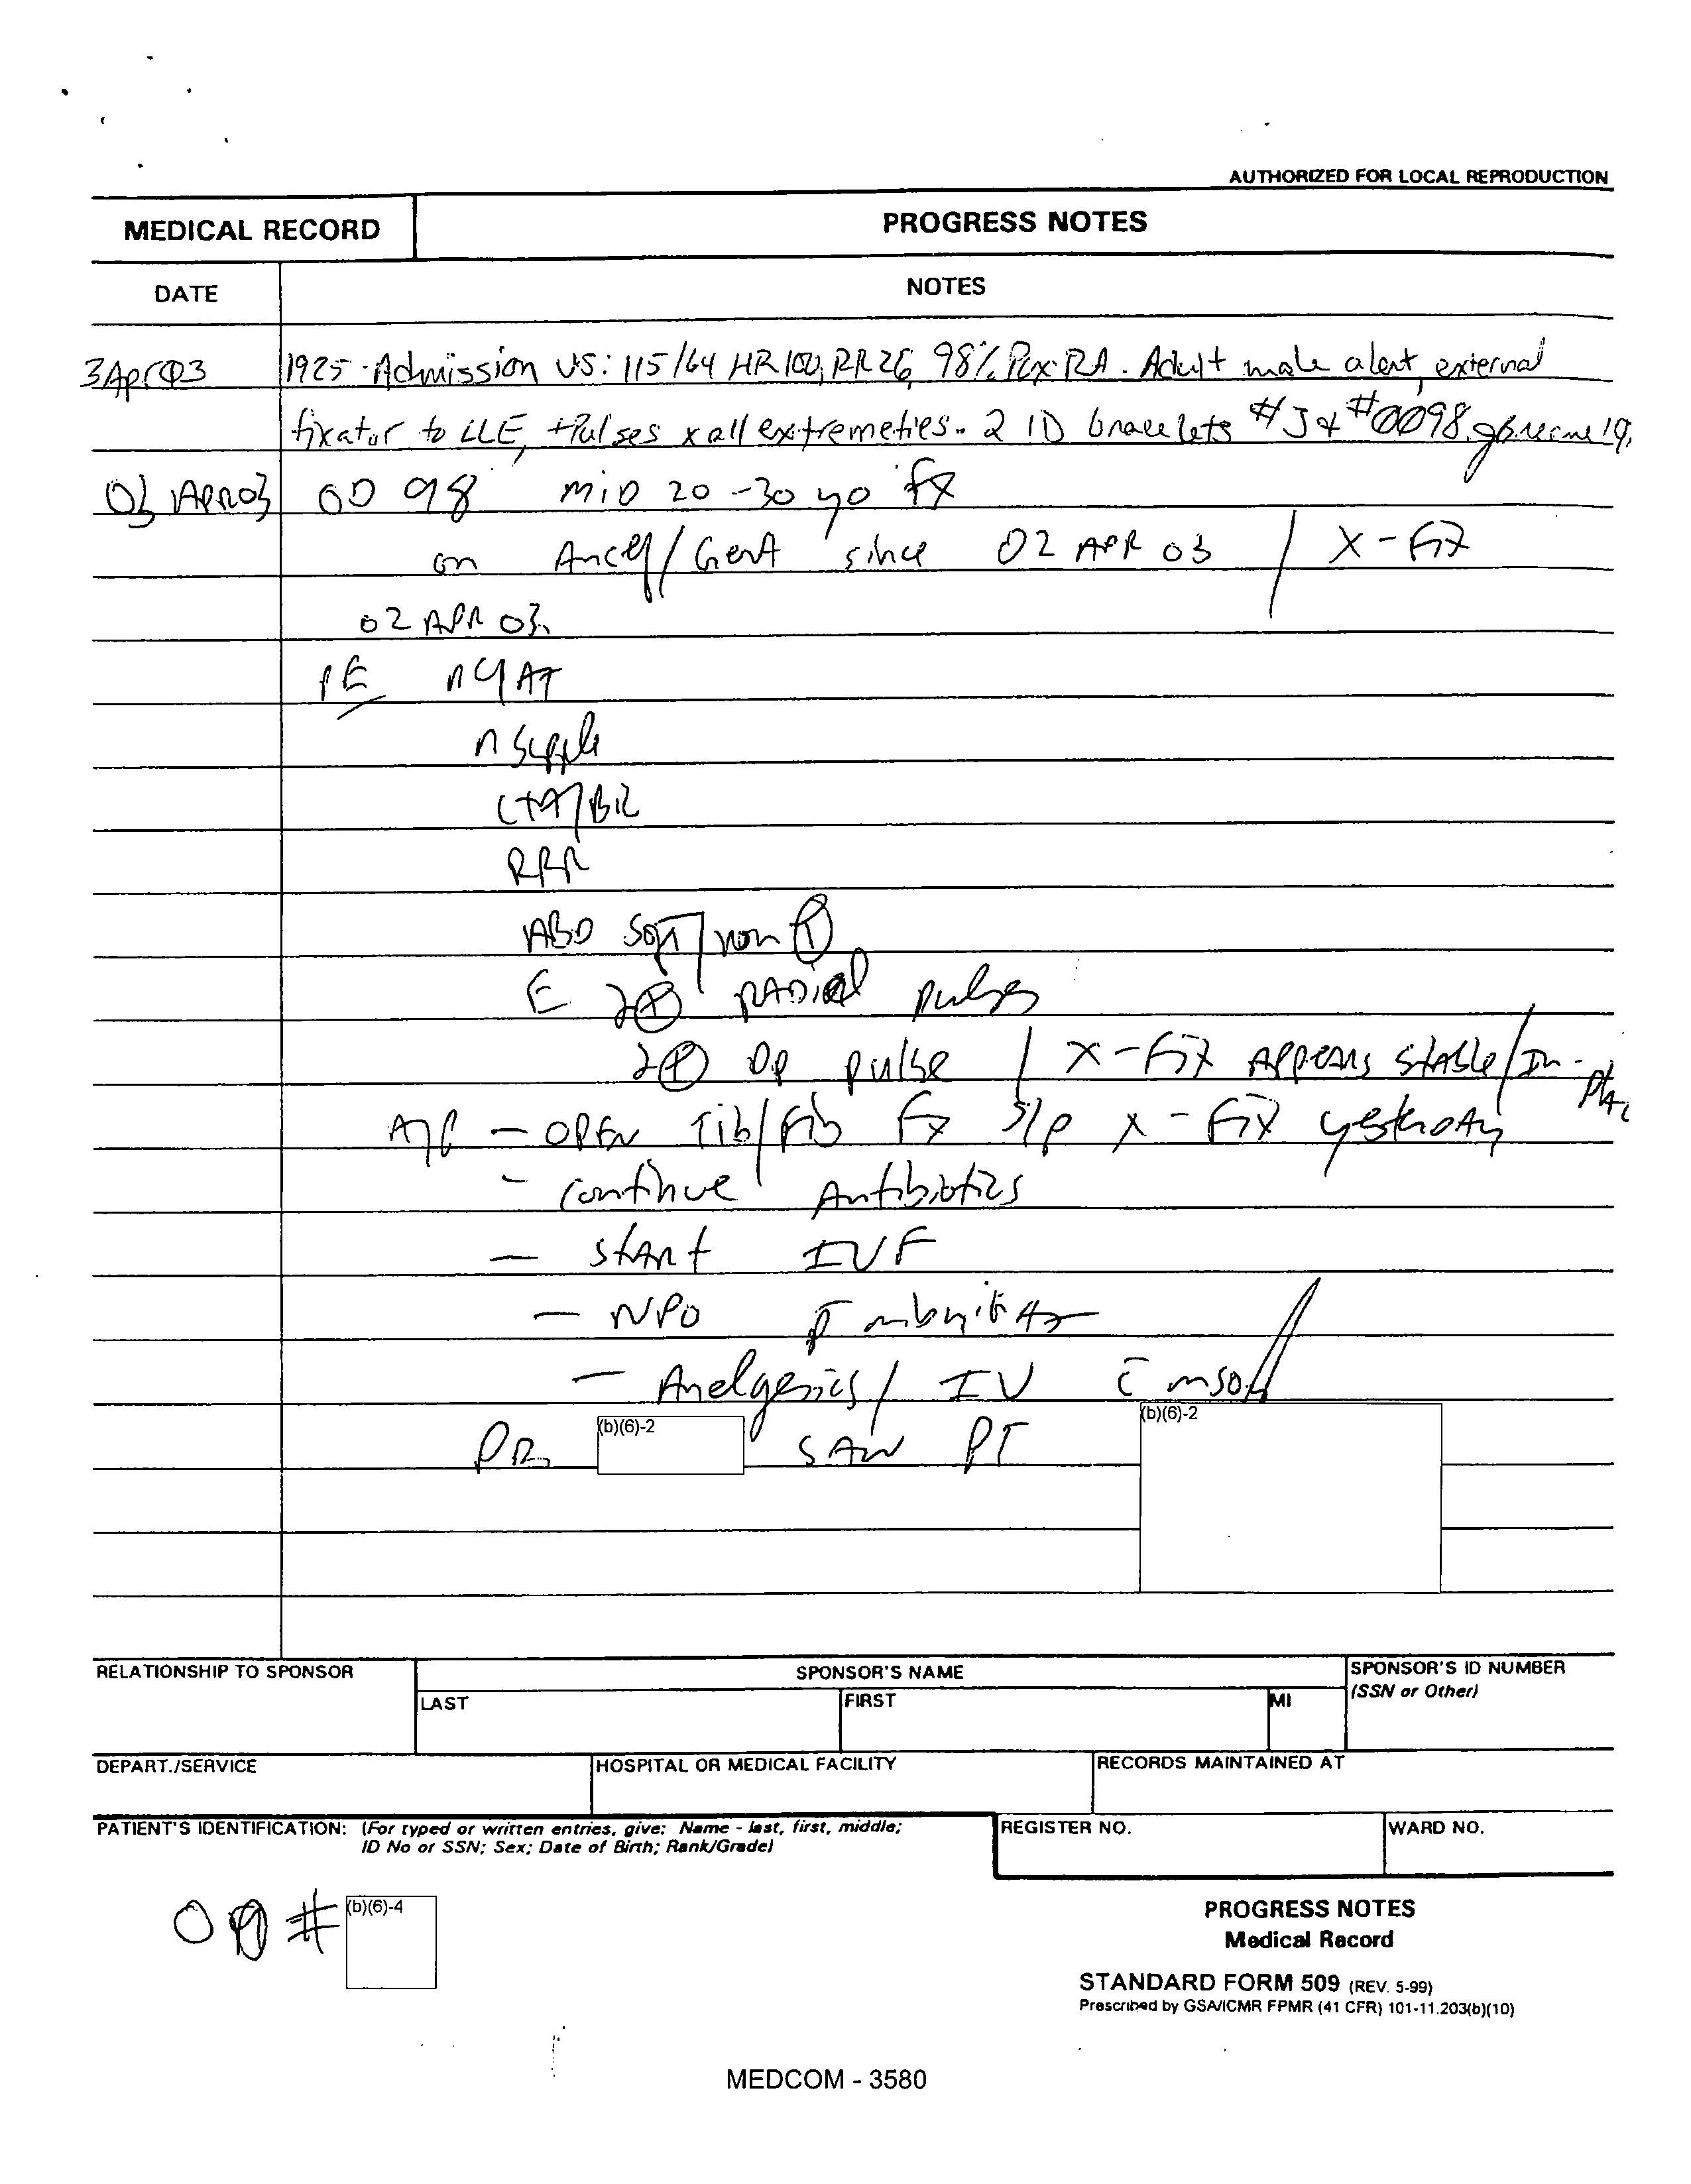 AUTHORIZED FOR LOCAL REPRODUCTION
MEDICAL RECORD
PROGRESS NOTES
DATE
NOTES
3AprØ3 1925 - Admission VS: 115/64 HR 100, RR 26, 98% RA. Adult male alert, external
fixator to LLE, +Pulses x all extremeties. 2 ID bracelets #J & #0098.
03 APR 03 0098 mid 20-30 yo Fx
on Ancef/Gent since 02 APR 03 / X-Fix
02 APR 03.
PE
n supple
CTA/Bil
RRR
ABD soft/non T
E 2+ radial pulses
2+ DP pulse / X-Fix appears stable/In-
A/P - OPEN Tib/Fib Fx S/P X-Fix yesterday
- continue Antibiotics
- start IVF
- NPO
- Analgesics/IV c̄ MSO4
DR. (b)(6)-2 SAW PT
(b)(6)-2
RELATIONSHIP TO SPONSOR
SPONSOR'S NAME
SPONSOR'S ID NUMBER
(SSN or Other)
LAST
FIRST
MI
DEPART./SERVICE
HOSPITAL OR MEDICAL FACILITY
RECORDS MAINTAINED AT
PATIENT'S IDENTIFICATION: (For typed or written entries, give: Name - last, first, middle;
ID No or SSN; Sex; Date of Birth; Rank/Grade)
REGISTER NO.
WARD NO.
# (b)(6)-4
PROGRESS NOTES
Medical Record
STANDARD FORM 509 (REV. 5-99)
Prescribed by GSA/ICMR FPMR (41 CFR) 101-11.203(b)(10)
MEDCOM - 3580